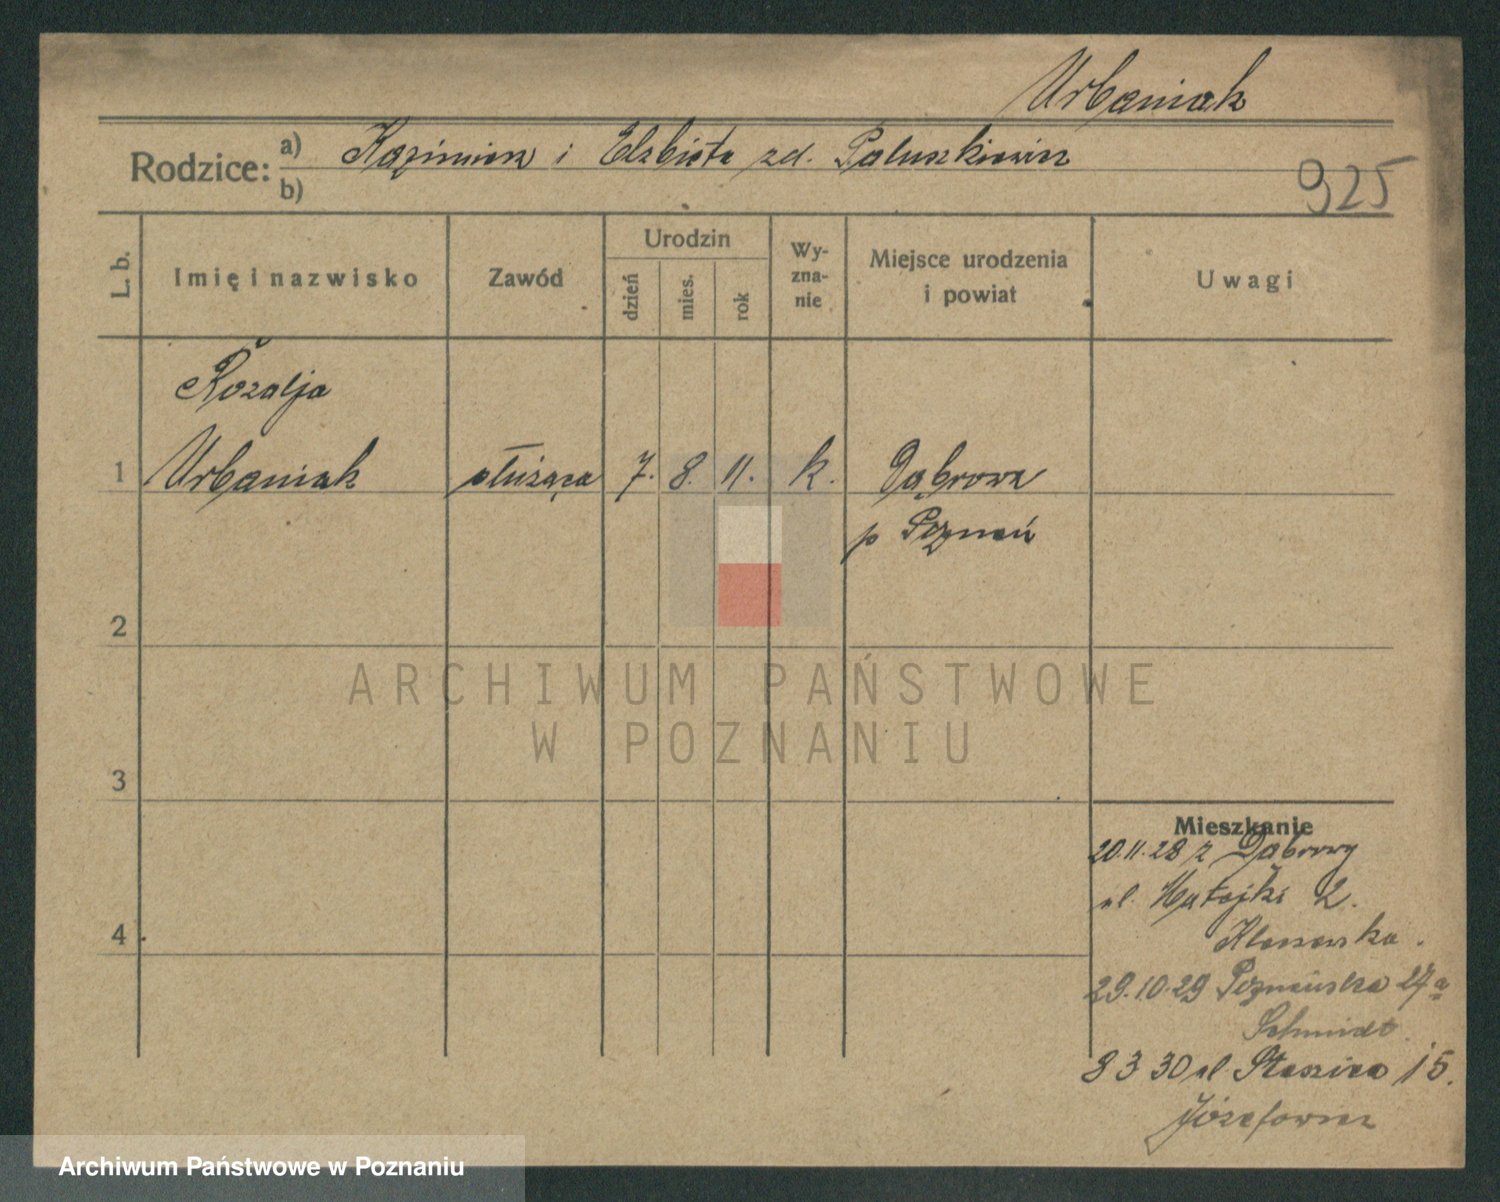 Urbaniak
Rodzice: a) Kazimierz i Elżbieta zd. Paluszkiewicz
b)
925
L. b.
Imię i nazwisko
Zawód
Urodzin
dzień
mies.
rok
Wy-
zna-
nie
Miejsce urodzenia
i powiat
Uwagi
Rozalja
1 Urbaniak służąca 7. 8. 11. k. Dąbrowa
p Poznań
2
3
4
ARCHIWUM PAŃSTWOWE
W POZNANIU
Mieszkanie
20.11.28 z Dąbrowy
ul. Matejki 2.
29.10.29 Poznańska 27a
Schmidt.
8 3 30 ul Staszica 15.
Józefowicz
Archiwum Państwowe w Poznaniu